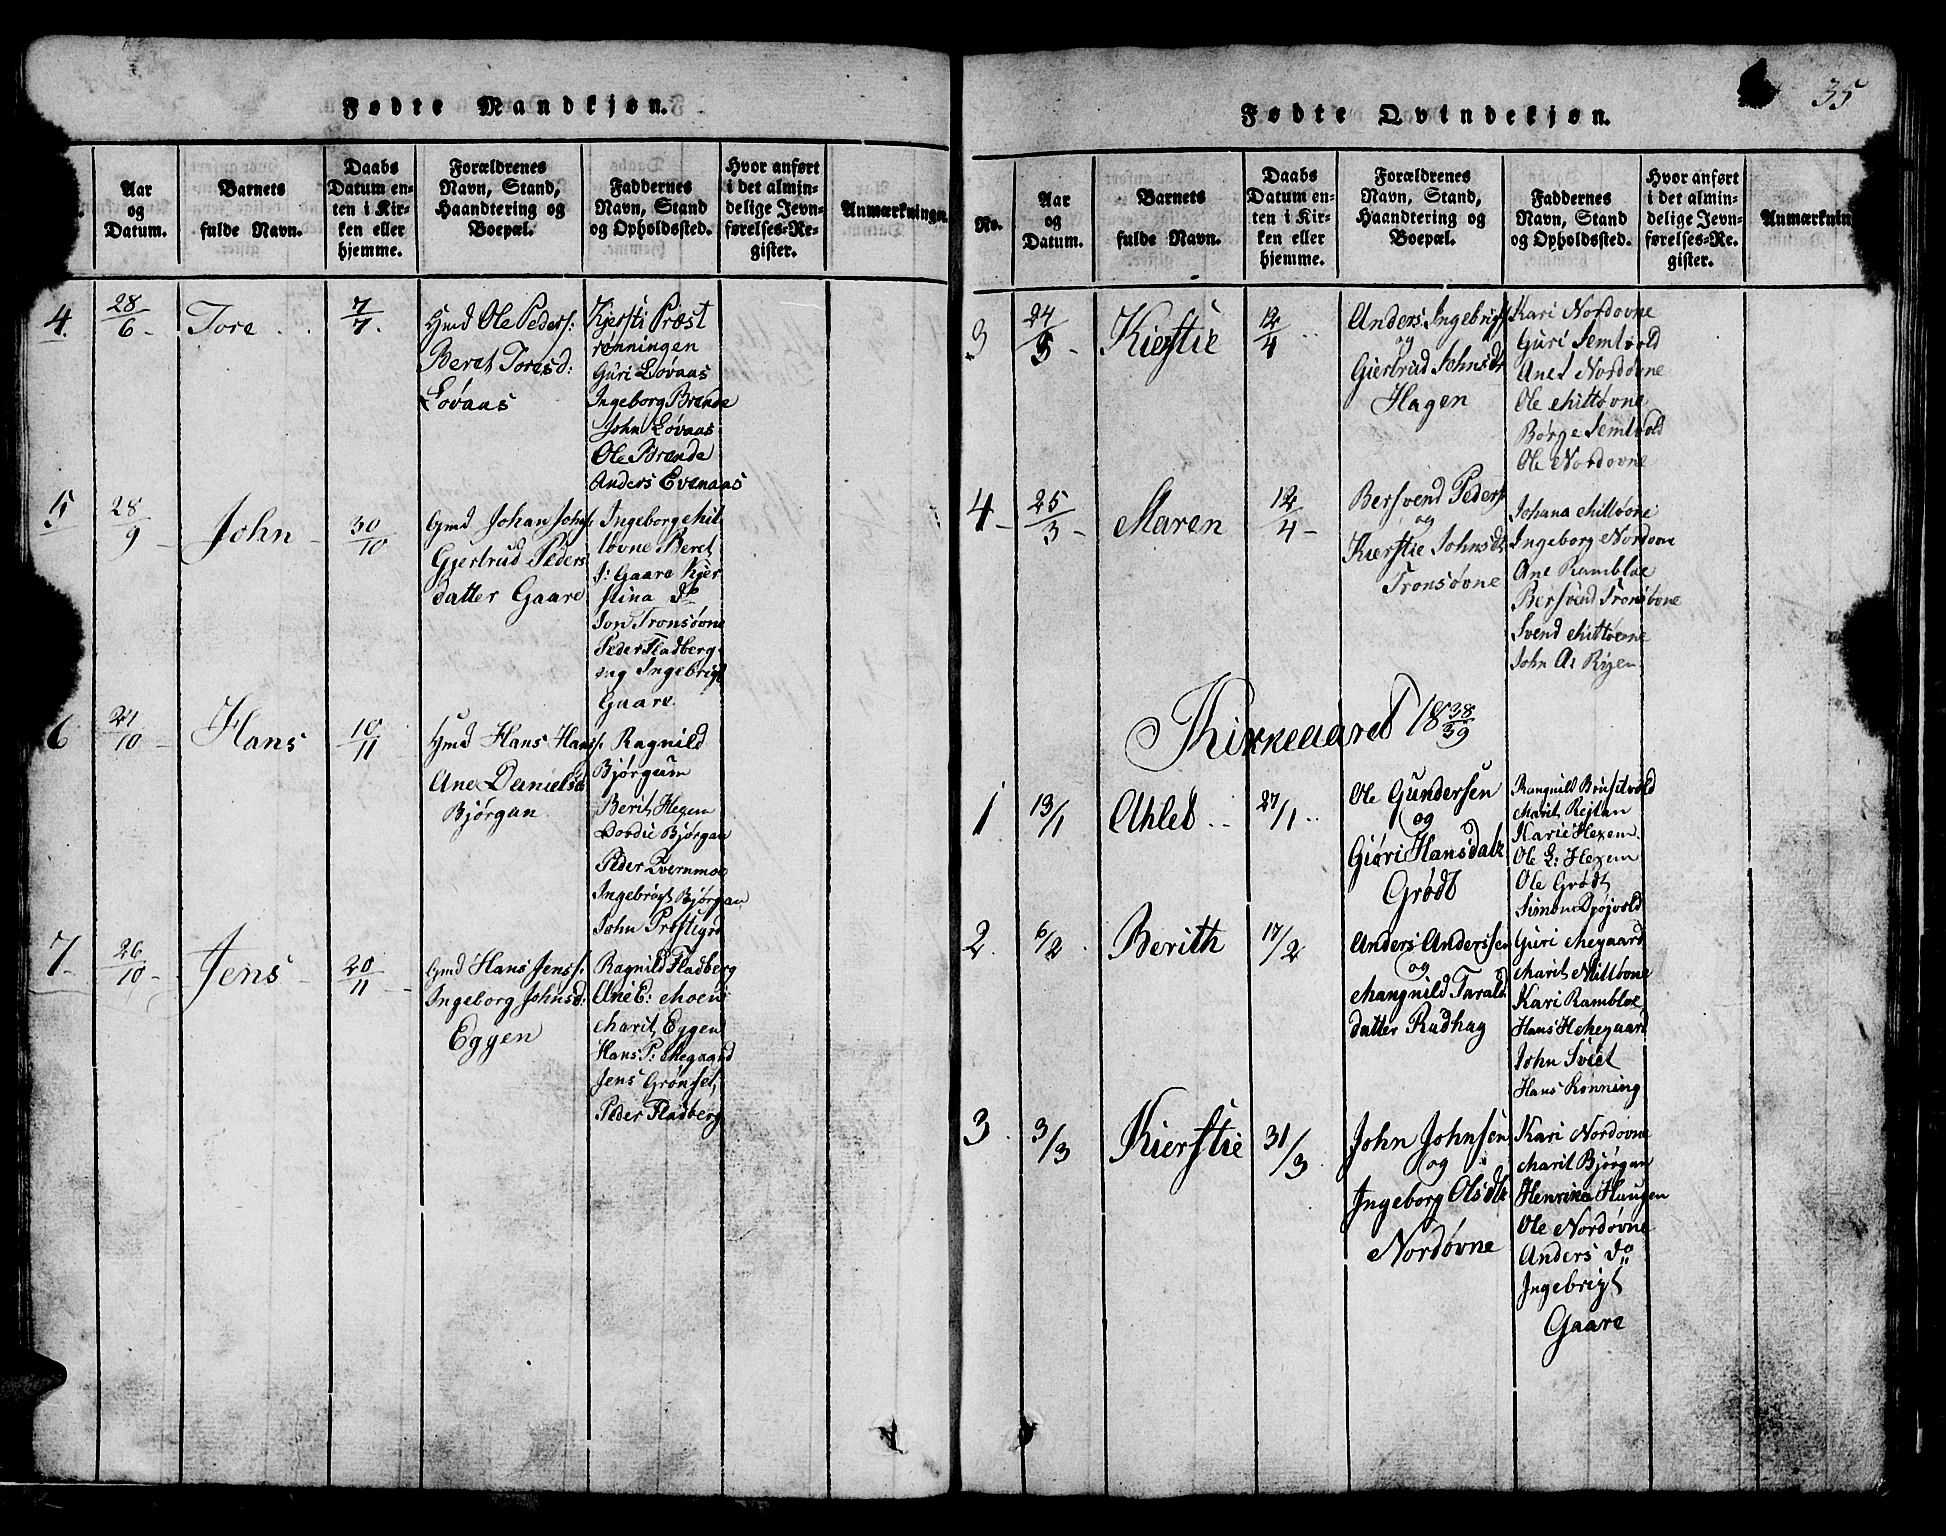 35
Fødte Mandkjøn.
Aar og Datum.
Barnets fulde Navn.
Daabs Datum enten i Kirken eller hjemme.
Forældrenes Navn, Stand, Haandtering og Boepæl.
Faddernes Navn, Stand og Opholdssted.
Hvor anført i det almindelige Jevnførelses-Register.
Anmærkninger
4.
28/6
Tore
7/7.
Gmd Ole Peders:
Beret Toresd:
Løvaas
Kjersti Præst
rønningen
Guri Løvaas
Ingeborg Brende
John Løvaas
Ole Brende
Anders Evenaas
5
28/9
John
30/10
Gmd Johan Johns:
Gjertrud Peders
datter Gaare
Ingeborg Mit
tøvne Beret
J: Gaare Kjer
stina Do
Jon Tronsøvne
Peder Fladberg
og Ingebrigt
Gaare
6
21/10
Hans
10/11
Gmd Hans Hans:
Ane Danielsd
Bjørgan
Ragnild
Bjørgum
Berit Hexem
Dordie Bjørgan
Peder Kvernmoe
Ingebrigt Bjørgan
John Prestigrd
7
26/10
Jens
20/11
Gmd Hans Jens:
Ingeborg Johnsd:
Eggen
Ragnild Fladberg
Ane E: Moen
Marit Eggen
Hans P: Megaard
Jens Grønset
Peder Fladberg
Fødte Qvindekjøn.
No.
Aar og Datum.
Barnets fulde Navn.
Daabs Datum enten i Kirken eller hjemme.
Forældrenes Navn, Stand, Haandtering og Boepæl.
Faddernes Navn, Stand og Opholdssted.
Hvor anført i det almindelige Jevnførelses-Register.
Anmærkning
3
24/3
Kierstie
12/4
Anders Ingebrigts
og
Giertrud Johnsdt
Hagen
Kari Nordøvne
Guri Semtvold
Anet Nordøvne
Ole Mittøvne
Børge Semtvold
Ole Nordøvne
4
25/3
Maren
12/4
Bersvend Peders
og
Kierstie Johnsdt
Tronsøvne
Johana Mittøvne
Ingeborg Nordøvne
Ane Rambloe
Bersvend Tronsøvne
Svend Mittøvne
John A: Ryen
Kirkeaaret 1838/39
1
13/1
Ahlet
27/1
Ole Gundersen
og
Giøri Hansdatr
Grødt
Rangnild Brusetvold
Marit Rejtan
Karie Hexem
Ole L: Hexem
Ole Grødt
Simon Drøjvold
2
6/2
Berith
17/2
Anders Anderssen
og
Mangnild Tarald
datter Rudhag
Guri Megaard
Marit Mittøvne
Kari Rambloe
Hans H Megaard
John Svéet
Hans Rønning
3
3/3
Kierstie
31/3
John Johnsen
og
Ingeborg Olsdtr
Nordøvne
Kari Nordøvne
Marit Bjørgan
Henrina Haugen
Ole Nordøvne
Anders do
Ingebrigt
Gaare